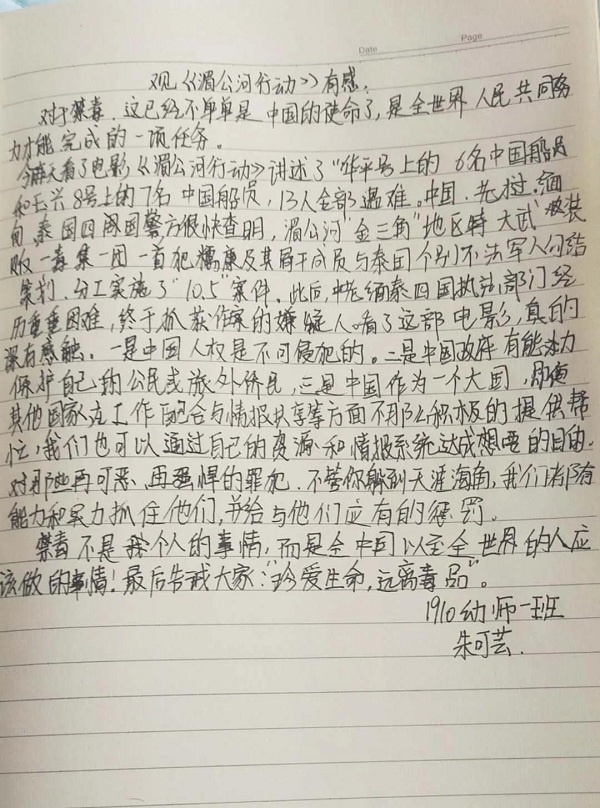 Date
Page
观《湄公河行动》有感.
对于禁毒.这已经不单单是中国的使命了,是全世界人民共同努
力才能完成的一项任务。
今天看了电影《湄公河行动》讲述了"华平号上的6名中国船员
和玉兴8号上的7名中国船员,13人全部遇难.中国.老挝.缅
甸泰国四国国警方很快查明,湄公河"金三角"地区特大武"装
贩毒集团首犯糯康及其骨干成员与泰国个别不法军人勾结
策划.分工实施了"10.5"案件.此后,中老缅泰四国执法部门经
历重重困难,终于抓获作案的嫌疑人.看了这部电影,真的
深有感触.一是中国人权是不可侵犯的。二是中国政府有能力
保护自己的公民或旅外侨民,三是中国作为一个大国,即使
其他国家在工作配合与情报共享等方面不那么积极的提供帮
忙,我们也可以通过自己的资源和情报系统达成想要的目的.
对那些再可恶.再强悍的罪犯.不管你躲到天涯海角,我们都有
能力和实力抓住他们,并给与他们应有的惩罚。
禁毒不是我个人的事情,而是全中国以至全世界的人应
该做的事情!最后告诫大家:"珍爱生命,远离毒品"。
1910幼师一班
朱可芸.